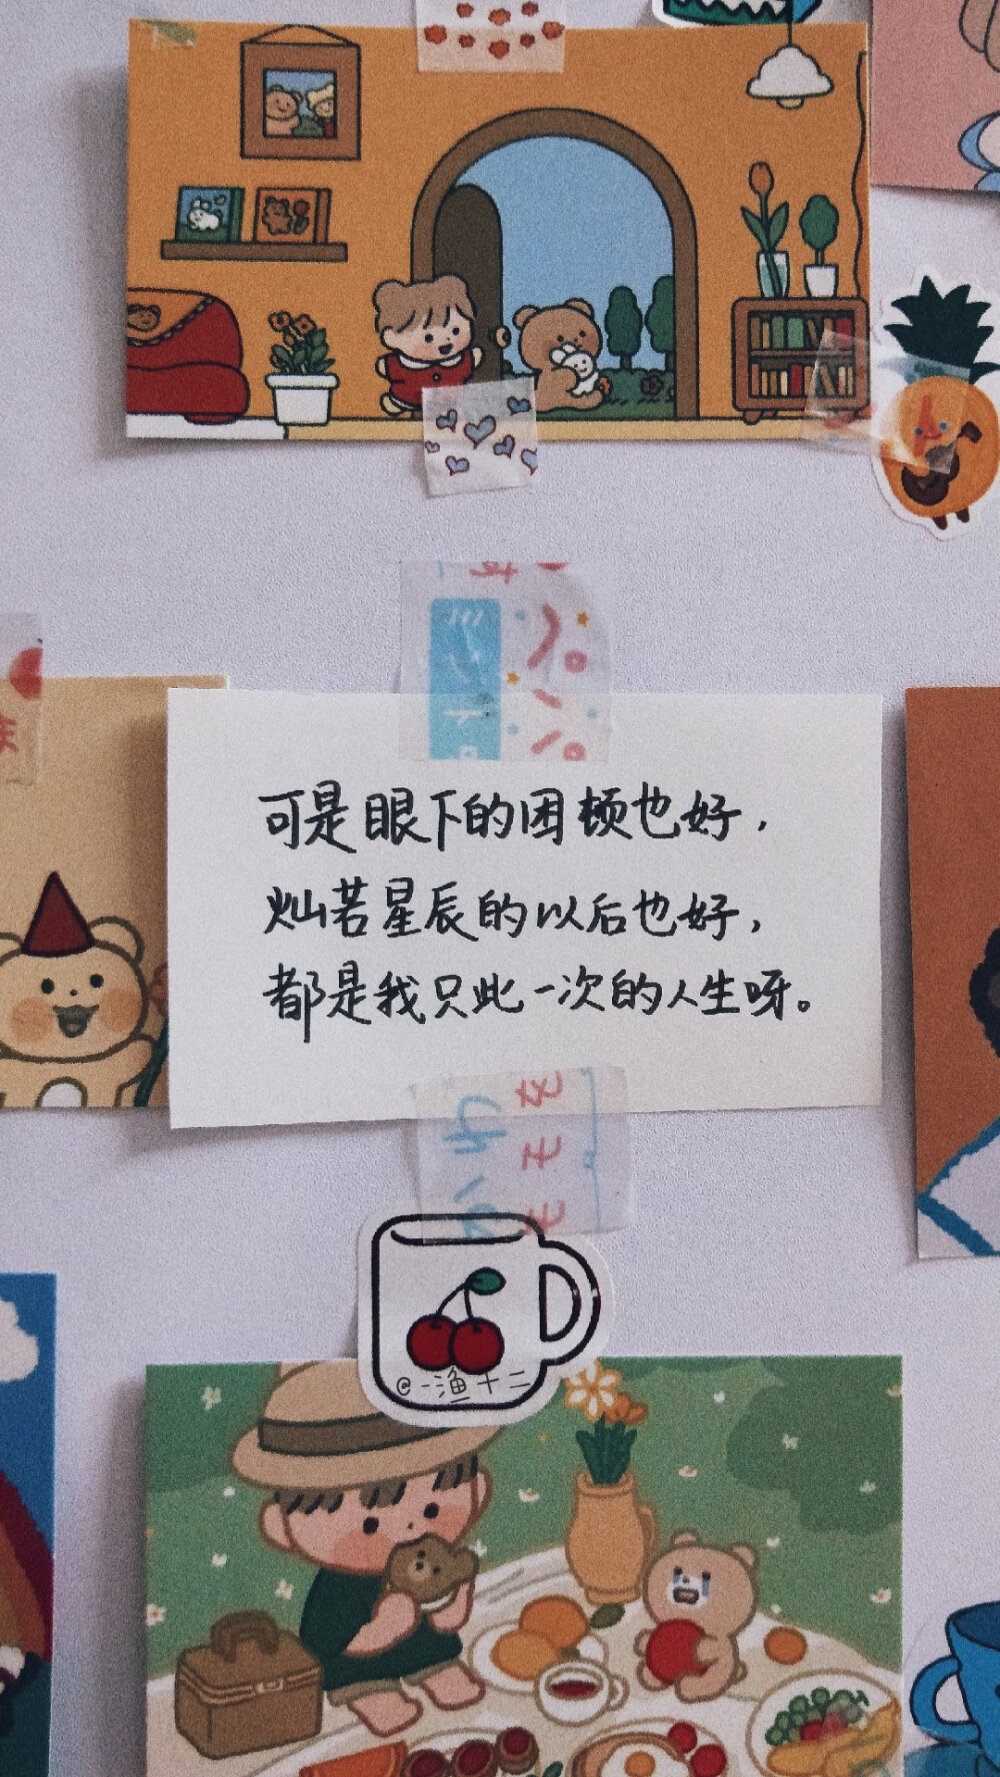 可是眼下的困顿也好，
灿若星辰的以后也好，
都是我只此一次的人生呀。
@一渔十二